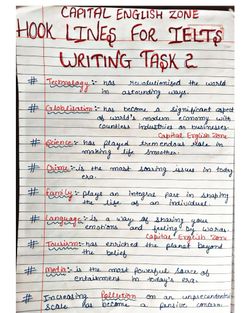 CAPITAL ENGLISH ZONE
HOOK LINES FOR IELTS
WRITING TASK 2
# Technology :- has revolutionised the world
in astounding ways.
# Globalisation :- has become a significant aspect
of world's modern economy with
countless industries or businesses.
Capital English Zone
# Science :- has played tremendous role in
making life smoother.
# Crime :- is the most soaring issue in today
era.
# Family :- plays an integral part in shaping
the life of an individual.
# Language :- is a way of sharing your
emotions and feeling by words.
Capital English Zone
# Tourism :- has enriched the planet beyond
the belief.
# Media :- is the most powerful
entertainment in today's era.
# Increasing Pollution on an unprecedented
scale has become a concern.